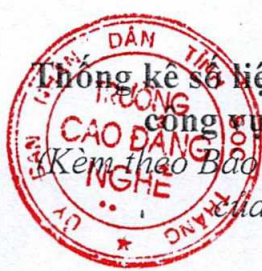 Thống kê số liệ
công vụ
(Kèm theo Báo
của
ỦY BAN NHÂN DÂN TỈNH
TRƯỜNG
CAO ĐẲNG
NGHỀ